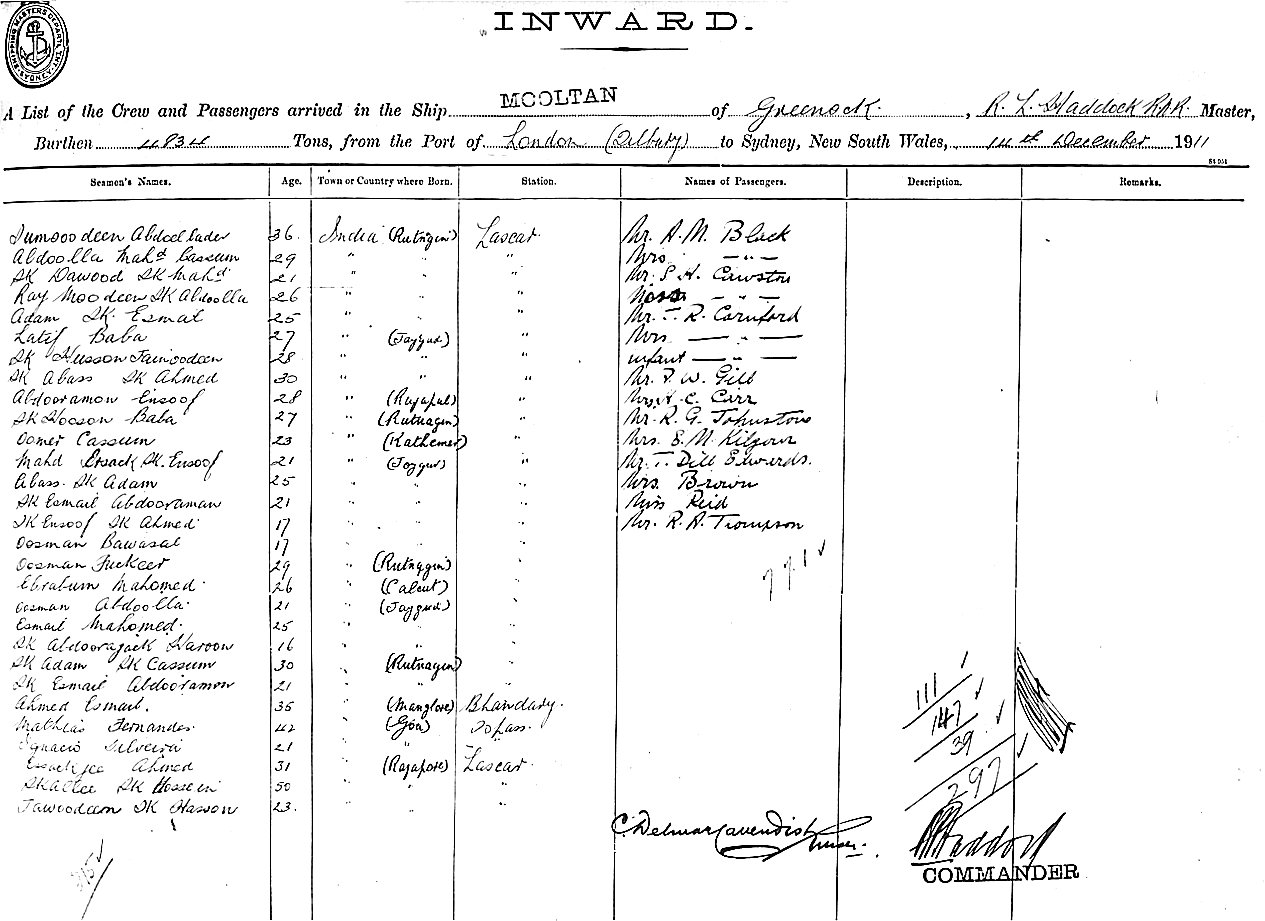 SHIPPING MASTERS DEPARTMENT SYDNEY
INWARD.
A List of the Crew and Passengers arrived in the Ship MOOLTAN of Greenock, R. L. Haddock RNR Master,
Burthen 4834 Tons, from the Port of London (Tilbury) to Sydney, New South Wales, 14th December 1911
Seamen's Names. Age. Town or Country where Born. Station. Names of Passengers. Description. Remarks.
36. India (Rutnigiri) Lascar. Mr. A. M. Black
Abdoolla Mahd Cassum 29 " " " Mrs — " —
SK Dawood SK Mahd 21 " " " Mr. S. H. Cawston
Ray Moodeen SK Abdoolla 26 " " " — " —
Adam SK. Esmal 25 " " " Mr. T. R. Carnford
Latif Baba 27 " (Jaygud) " Mrs — " —
SK Husson Jainoodeen 28 " " " infant — " —
SK Abass SK Ahmed 30 " " " Mr. F. W. Gill
Abdooramon Ensoof 28 " (Rajapul) " Mrs H. C. Carr
SK Hooson Baba 27 " (Rutnagiri) " Mr. R. G. Johnston
Oomer Cassum 23 " (Kathemer) " Mrs. E. M. Kilgour
Mahd Essack SK. Ensoof 21 " (Joygur) " Mr. T. Dill Edwards.
Abass. SK Adam 25 " " " Mrs. Brown
SK Esmail Abdooraman 21 " " " Miss Reid
SK Ensoof SK Ahmed 17 " " " Mr. R. A. Thompson
Oosman Bawasal 17 " " "
Oosman Fuckeer 29 " (Rutnagiri) "
Ebrahum Mahomed 26 " (Calcut) "
Oosman Abdoolla 21 " (Jaygud) "
Esmail Mahomed 25 " " "
SK Abdoorajack Haroon 16 " " "
SK Adam SK Cassum 30 " (Rutnagiri) "
SK Esmail Abdooramon 21 " " "
Ahmed Esmail. 35 " (Manglore) Bhandary.
Mathias Fernandes 42 " (Goa) Topass.
Ignacio Silveira 21 " " "
Essackjee Ahmed 31 " (Rajapore) Lascar.
SK Allee SK Hossein 50 " " "
Jawoodeen SK Hasson 23. " " "
771
111
147
39
297
315
C. Delmar Cavendish Purser.
R L Haddock
COMMANDER